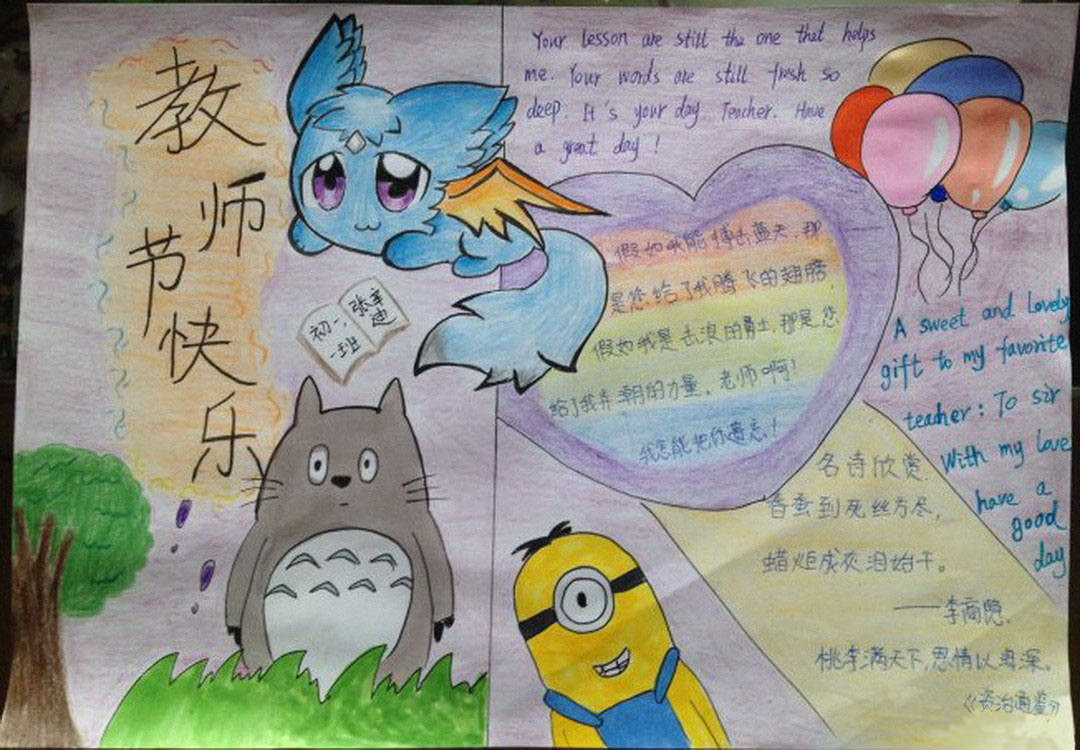 教师节快乐
初一、
一班
张辛
迪
Your lesson are still the one that helps
me. Your words are still fresh so
deep. It's your day. Teacher. Have
a great day !
假如我能搏击蓝天,那
是您给了我腾飞的翅膀,
假如我是击浪的勇士,那是您
给了我弄潮的力量,老师啊!
我怎能把你遗忘!
A sweet and lovely
gift to my favorite
teacher: To sir
With my love
have a
good
day
名诗欣赏
春蚕到死丝方尽,
蜡炬成灰泪始干。
——李商隐.
桃李满天下,恩情似海深。
《资治通鉴》